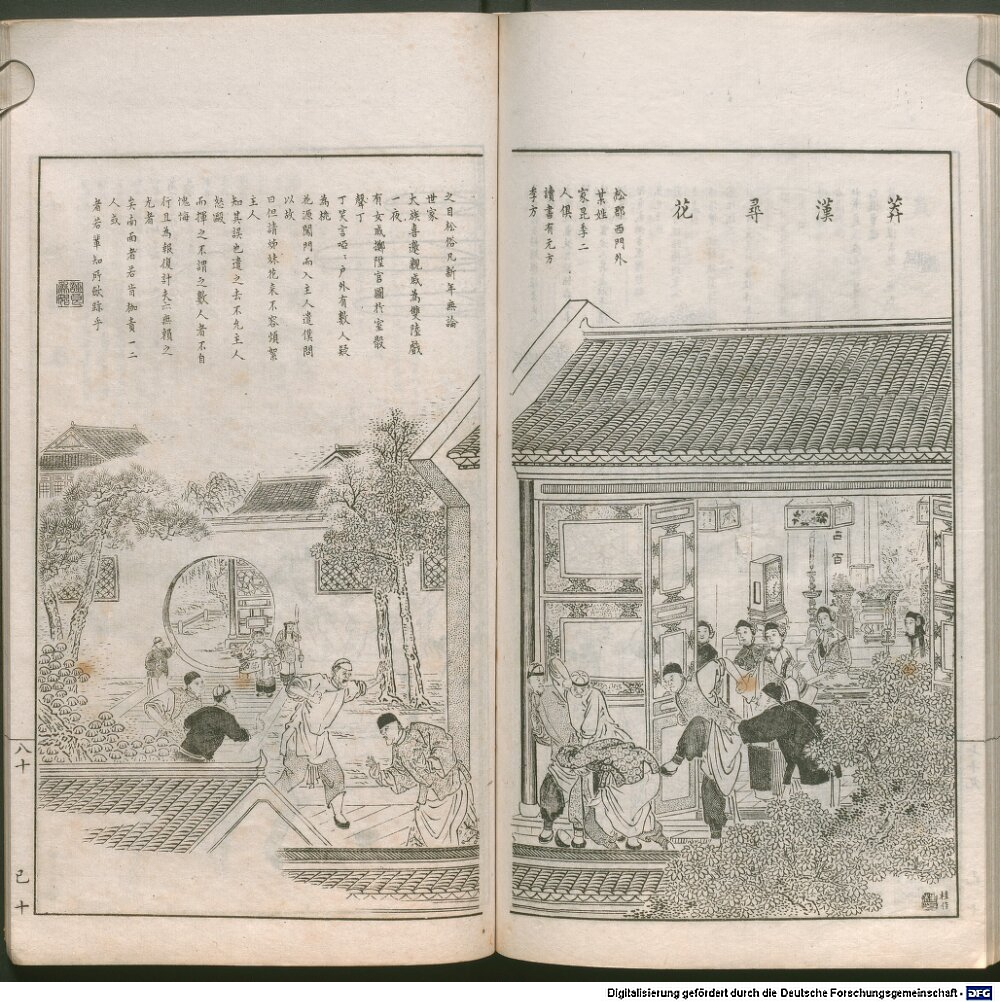 莽漢尋花
松郡西門外
葉姓
家昆季二
人俱
讀書有元方
季方
之目松俗凡新年無論
世家
大族喜邀親戚為雙陸戲
一夜
有女戚擲陞官圖於室骰
聲丁
丁笑言啞啞戶外有數人疑
為桃
花源闖門而入主人遣僕問
以故
曰但請姊妹花來不容煩絮
主人
知其誤也遣之去不允主人
怒毆
而揮之不謂之數人者不自
愧悔
行且為報復計夫亡無賴之
尤者
矣南面者若肯枷責一二
人或
者若輩知所斂跡乎
八十
己十
桂生
Digitalisierung gefördert durch die Deutsche Forschungsgemeinschaft - DFG